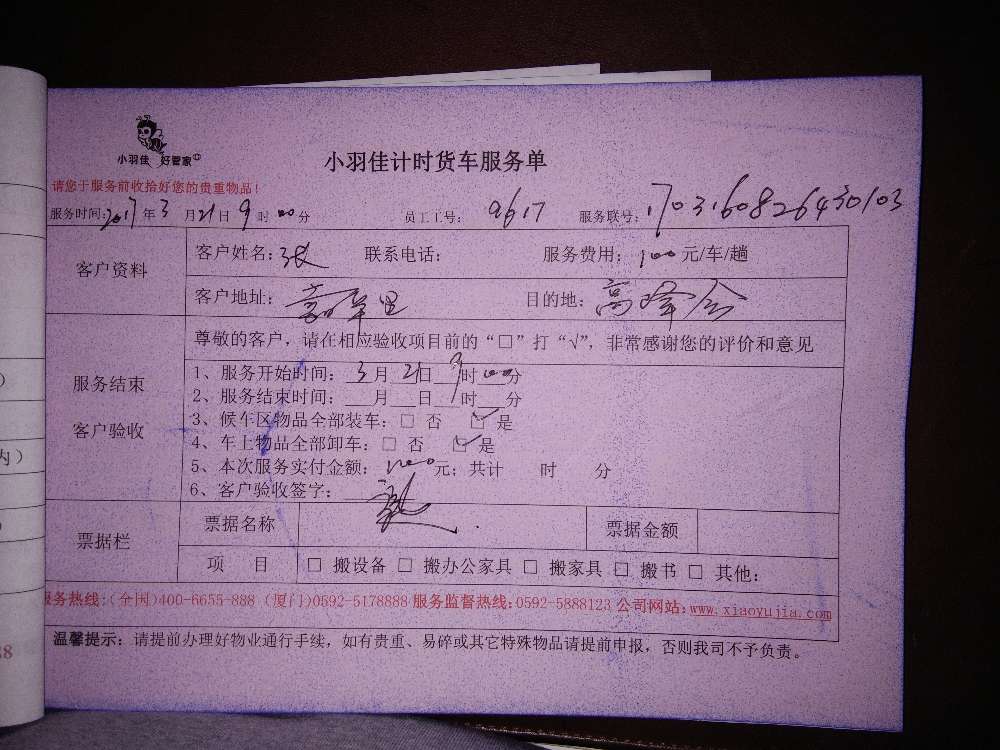 小羽佳 好管家
小羽佳计时货车服务单
请您于服务前收拾好您的贵重物品!
服务时间:2017年3月21日9时00分 员工工号: 9617 服务联号: 1703160826430103
客户资料
客户姓名:张 联系电话: 服务费用: 100元/车/趟
客户地址: 里 目的地: 高
服务结束
客户验收
尊敬的客户,请在相应验收项目前的“□”打“√”,非常感谢您的评价和意见
1、服务开始时间: 3月21日9时00分
2、服务结束时间: 月 日 时 分
3、候车区物品全部装车:□ 否 ☑是
4、车上物品全部卸车:□ 否 ☑是
5、本次服务实付金额: 100元;共计 时 分
6、客户验收签字:
票据栏
票据名称 票据金额
项 目 □ 搬设备 □ 搬办公家具 □ 搬家具 □ 搬书 □ 其他:
服务热线:(全国)400-6655-888 (厦门)0592-5178888 服务监督热线:0592-5888123 公司网站:www.xiaoyujia.com
温馨提示:请提前办理好物业通行手续,如有贵重、易碎或其它特殊物品请提前申报,否则我司不予负责。
内)
28